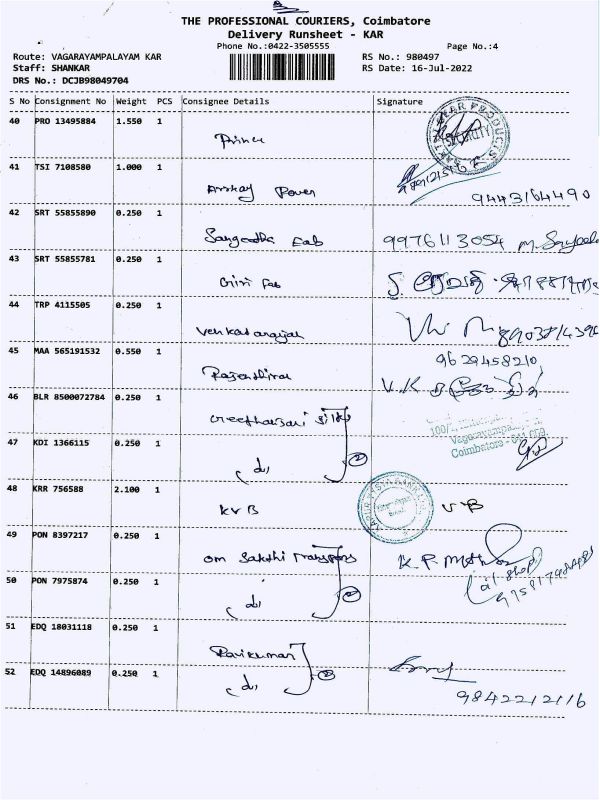 THE PROFESSIONAL COURIERS, Coimbatore
Delivery Runsheet - KAR
Phone No.:0422-3505555
Page No.:4
Route: VAGARAYAMPALAYAM KAR
RS No.: 980497
Staff: SHANKAR
RS Date: 16-Jul-2022
DRS No.: DCJB98049704
S No Consignment No Weight PCS Consignee Details Signature
40 PRO 13495884 1.550 1
Prince
41 TSI 7108580 1.000 1
Power
9443164490
42 SRT 55855890 0.250 1
Sangeetha Fab 9976113054
43 SRT 55855781 0.250 1
Giri Fab
44 TRP 4115505 0.250 1
Venkatarajal
45 MAA 565191532 0.550 1
9629458210
V.K
46 BLR 8500072784 0.250 1
47 KDI 1366115 0.250 1
Coimbatore
(do) 2
48 KRR 756588 2.100 1
KVB
49 PON 8397217 0.250 1
Om Sakthi Transports K.P.
50 PON 7975874 0.250 1
(do) 2
51 EDQ 18031118 0.250 1
Ravikumar
52 EDQ 14896089 0.250 1
(do) 2
9842212116